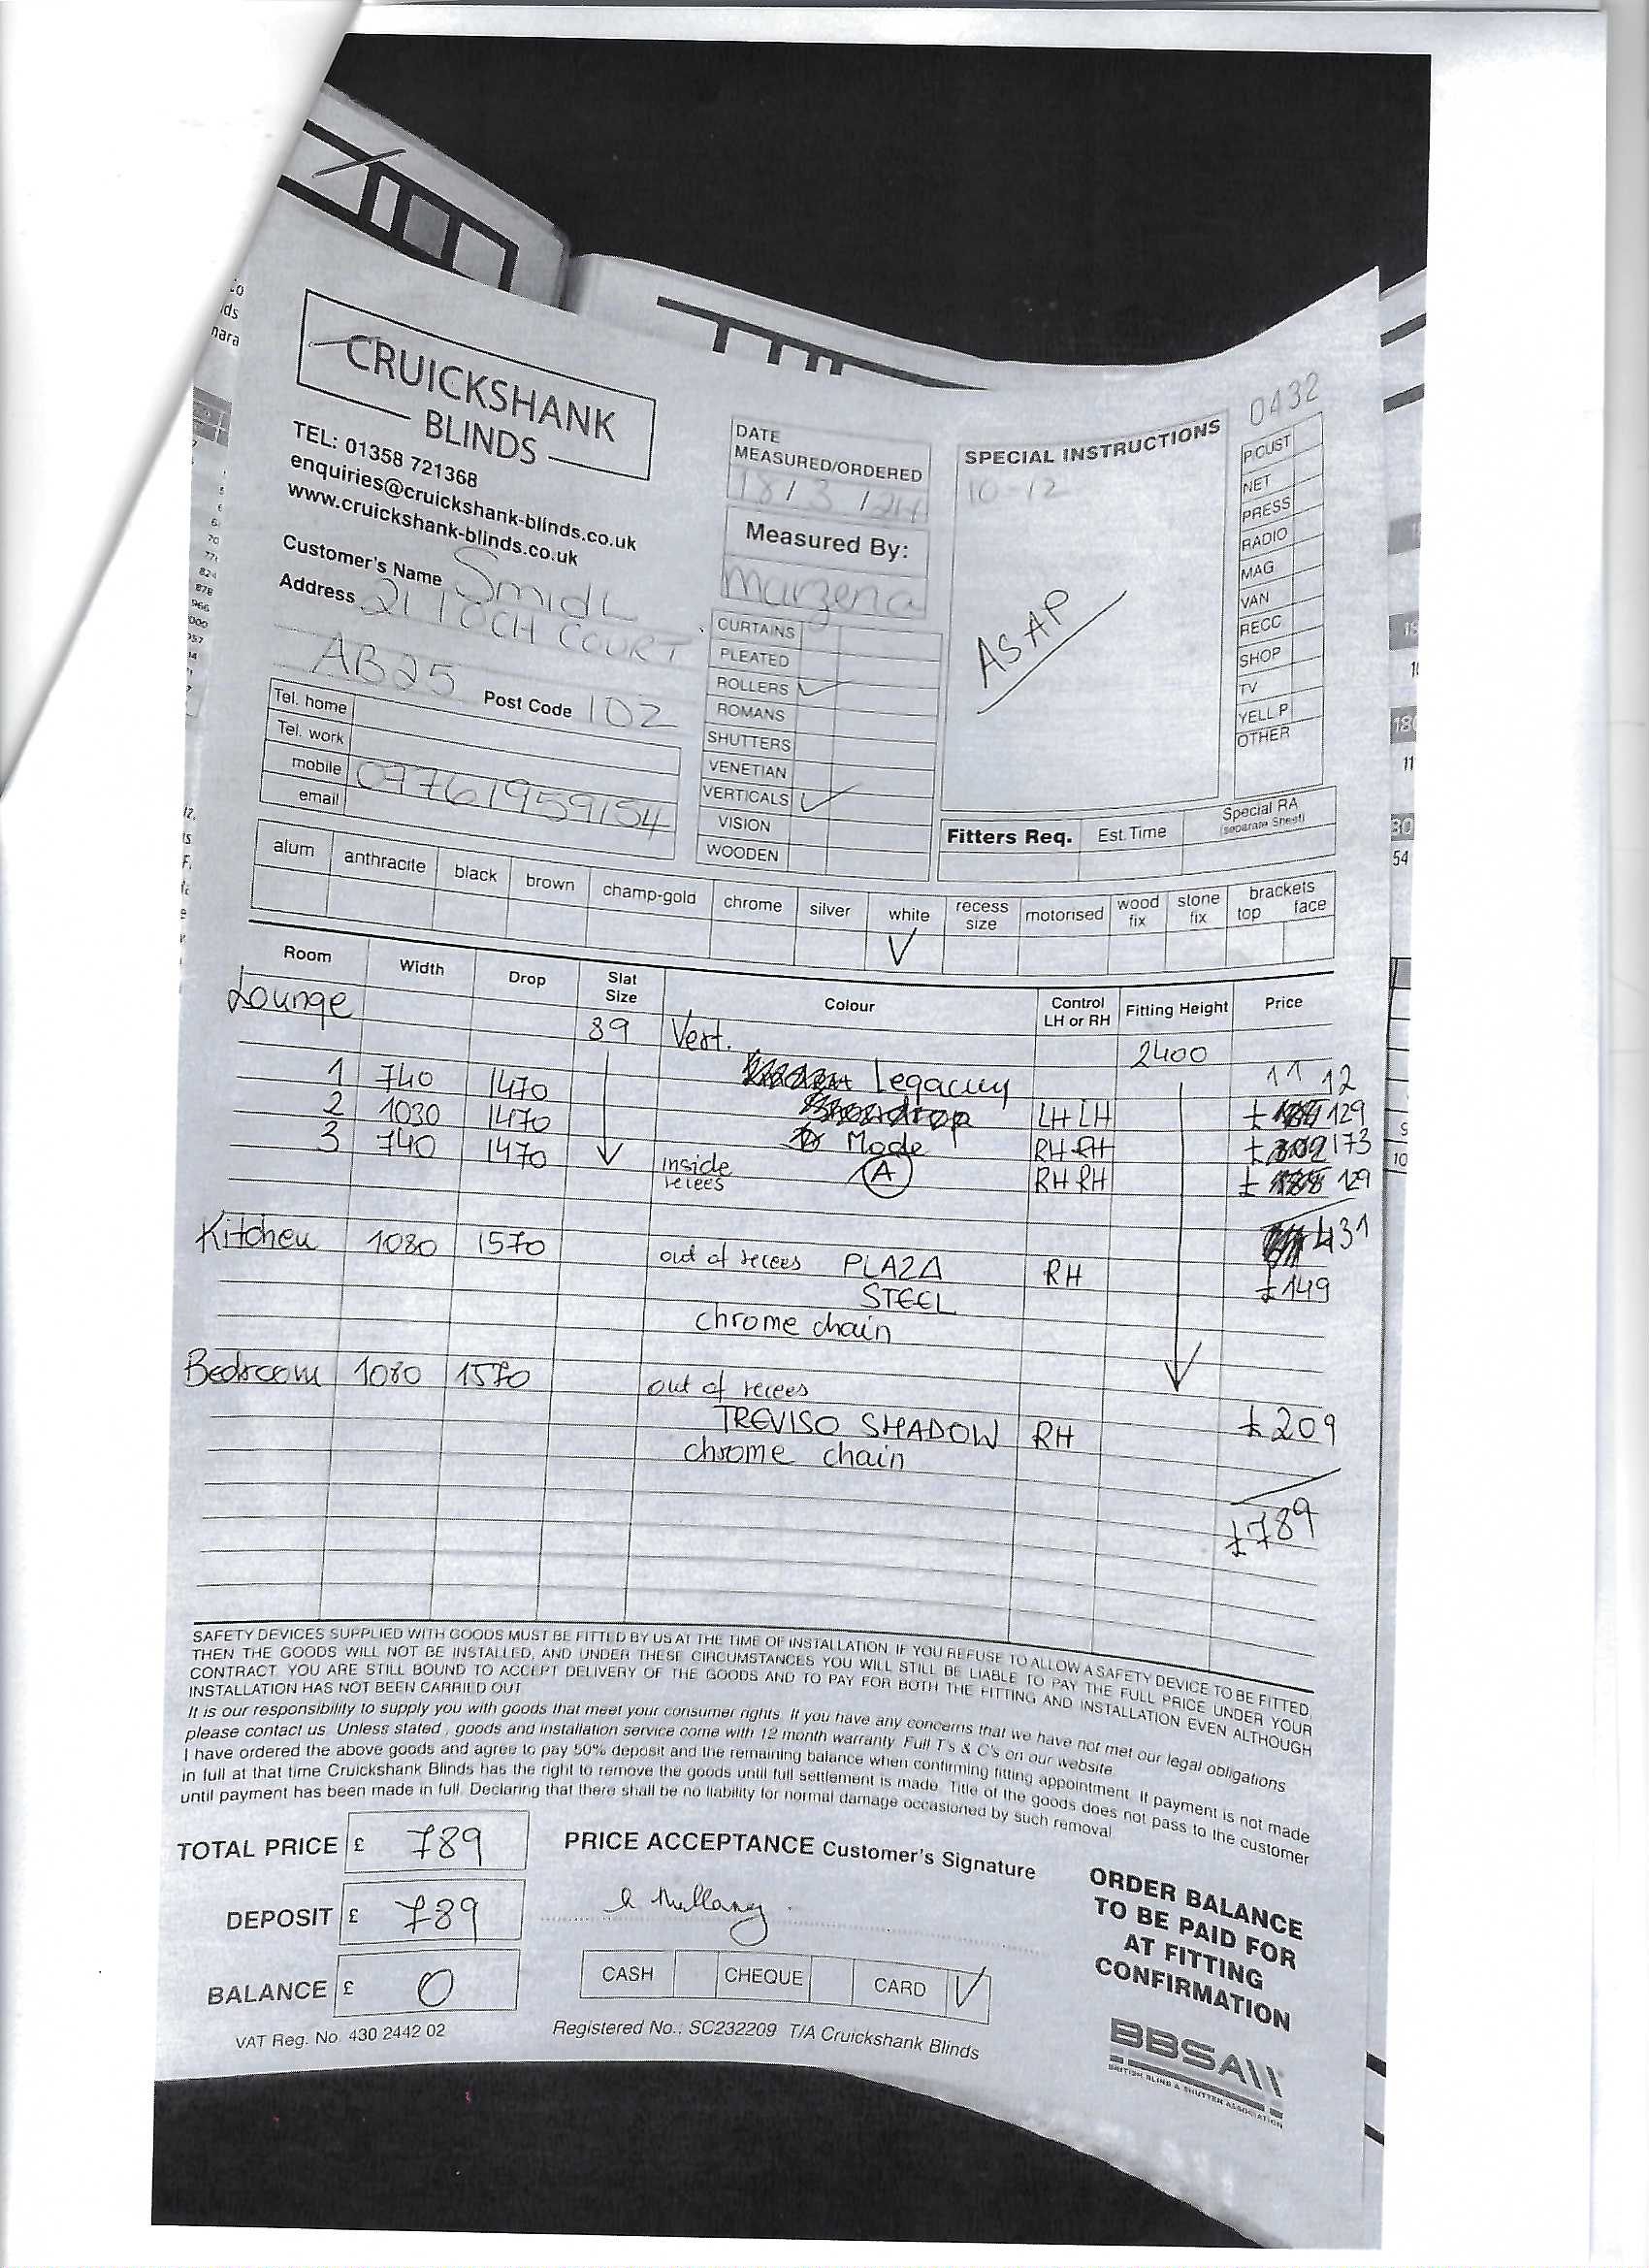 CRUICKSHANK
BLINDS
TEL: 01358 721368
enquiries@cruickshank-blinds.co.uk
www.cruickshank-blinds.co.uk
Customer's Name Smidl
Address 21 LOCH COURT
AB25 Post Code 1DZ
Tel. home
Tel. work
mobile 07761959154
email
DATE
MEASURED/ORDERED
18/3/24
Measured By:
Marzena
CURTAINS
PLEATED
ROLLERS ✓
ROMANS
SHUTTERS
VENETIAN
VERTICALS ✓
VISION
WOODEN
SPECIAL INSTRUCTIONS
10-12
ASAP
0432
P.CUST
NET
PRESS
RADIO
MAG
VAN
RECC
SHOP
TV
YELL P
OTHER
Fitters Req. Est. Time Special RA
(separate Sheet)
alum anthracite black brown champ-gold chrome silver white recess size motorised wood fix stone fix brackets top face
✓
Room Width Drop Slat Size Colour Control LH or RH Fitting Height Price
Lounge 89 Vert. 2400
11 12
1 740 1470 Legacuy LH LH £ 129
2 1030 1470 Mode RH RH £ 173
3 740 1470 inside recees A RH RH £ 129
431
Kitchen 1080 1570 out of recees PLAZA RH £149
STEEL
chrome chain
Bedroom 1080 1570 out of recees
TREVISO SHADOW RH £209
chrome chain
£789
SAFETY DEVICES SUPPLIED WITH GOODS MUST BE FITTED BY US AT THE TIME OF INSTALLATION. IF YOU REFUSE TO ALLOW A SAFETY DEVICE TO BE FITTED
THEN THE GOODS WILL NOT BE INSTALLED, AND UNDER THESE CIRCUMSTANCES YOU WILL STILL BE LIABLE TO PAY THE FULL PRICE UNDER YOUR
CONTRACT. YOU ARE STILL BOUND TO ACCEPT DELIVERY OF THE GOODS AND TO PAY FOR BOTH THE FITTING AND INSTALLATION EVEN ALTHOUGH
INSTALLATION HAS NOT BEEN CARRIED OUT
It is our responsibility to supply you with goods that meet your consumer rights. If you have any concerns that we have not met our legal obligations
please contact us. Unless stated, goods and installation service come with 12 month warranty. Full T's & C's on our website.
I have ordered the above goods and agree to pay 50% deposit and the remaining balance when confirming fitting appointment. If payment is not made
in full at that time Cruickshank Blinds has the right to remove the goods until full settlement is made. Title of the goods does not pass to the customer
until payment has been made in full. Declaring that there shall be no liability for normal damage occasioned by such removal
TOTAL PRICE £ 789
DEPOSIT £ 789
BALANCE £ 0
VAT Reg. No. 430 2442 02
PRICE ACCEPTANCE Customer's Signature
CASH CHEQUE CARD ✓
Registered No.: SC232209 T/A Cruickshank Blinds
ORDER BALANCE
TO BE PAID FOR
AT FITTING
CONFIRMATION
BBSA
BRITISH BLIND & SHUTTER ASSOCIATION